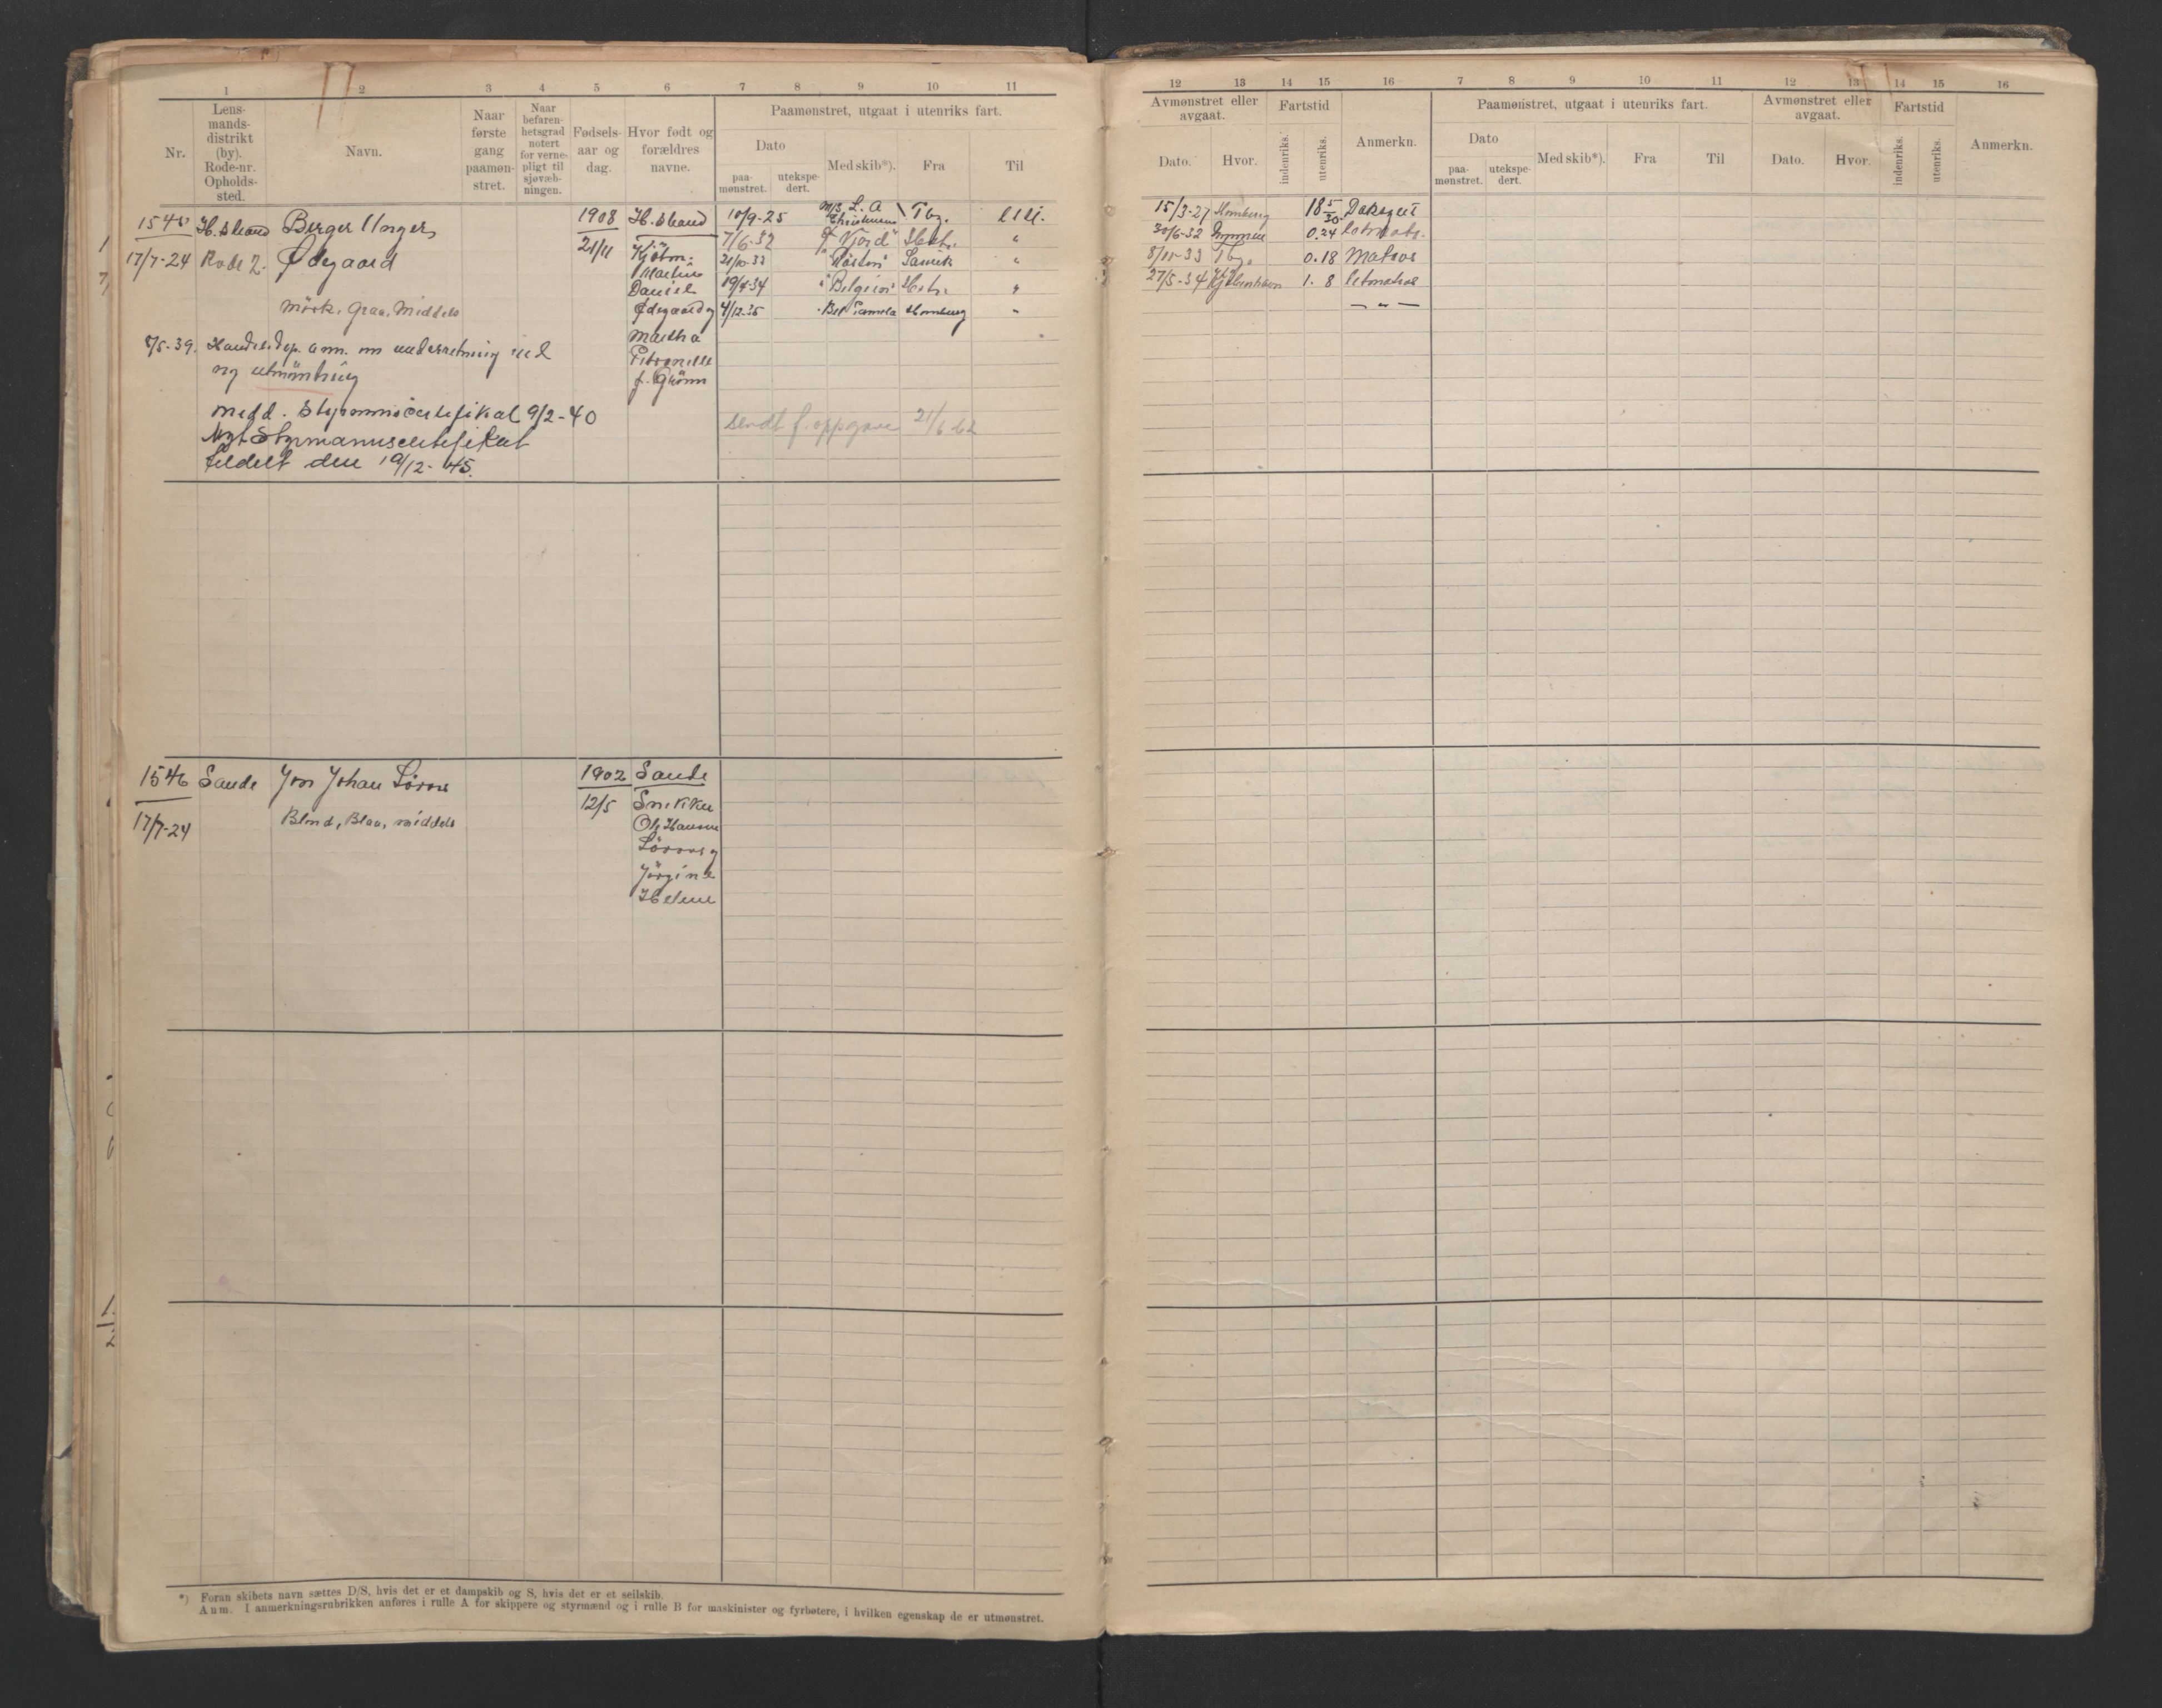 1 2 3 4 5 6 7 8 9 10 11
Nr.
Lens-
mands-
distrikt
(by).
Rode-nr.
Opholds-
sted.
Navn.
Naar
første
gang
paamøn-
stret.
Naar
befaren-
hetsgrad
notert
for verne-
pligt til
sjøvæb-
ningen.
Fødsels-
aar og
dag.
Hvor født og
forældres
navne.
Paamønstret, utgaat i utenriks fart.
Dato
paa-
mønstret.
utekspe-
dert.
Med skib*).
Fra
Til
1545 H. Strand Berger Unger 1908 H. Strand 10/9-25 M/S L. A Christensen Tbg. Utl.
17/7-24 Rode 2. Ødegaard 21/11 Kjøbm. 7/6-32 "Fjord"
Martin 21/10-33
Daniel 19/4-34 "Belgion"
Mörk, Graa, Middels Ødegaard og 4/12-35 Hamburg
Martha
Petronelle
f. Grönn
8/5-39. Handelsdep. anm. om underretning ved
ny utmönstring
Medd. Styrmannscertifikat 9/2-40
Nytt Styrmannscertifikat
tildelt den 19/12-45.
sendt f. oppgave 21/6 62
1546 Sande Jon Johan 1902 Sande
17/7-24 Blond, Blaa, middels 12/5 Snekker
Ole Hansen
Jörgine
Helene
*) Foran skibets navn sættes D/S, hvis det er et dampskib og S, hvis det er et seilskib.
Anm. I anmerkningsrubrikken anføres i rulle A for skippere og styrmænd og i rulle B for maskinister og fyrbøtere, i hvilken egenskap de er utmønstret.
12 13 14 15 16 7 8 9 10 11 12 13 14 15 16
Avmønstret eller
avgaat.
Dato.
Hvor.
Fartstid
indenriks.
utenriks.
Anmerkn.
Paamønstret, utgaat i utenriks fart.
Dato
paa-
mønstret.
utekspe-
dert.
Med skib*).
Fra
Til
Avmønstret eller
avgaat.
Dato.
Hvor.
Fartstid
indenriks.
utenriks.
Anmerkn.
15/3-27 Hamburg 18 5/30 Dæksgut
30/6-32 0.24
8/11-33 Tbg. 0.18 Matros
27/5-34 Kjøbenhavn 1. 8 Letmatros
— " —